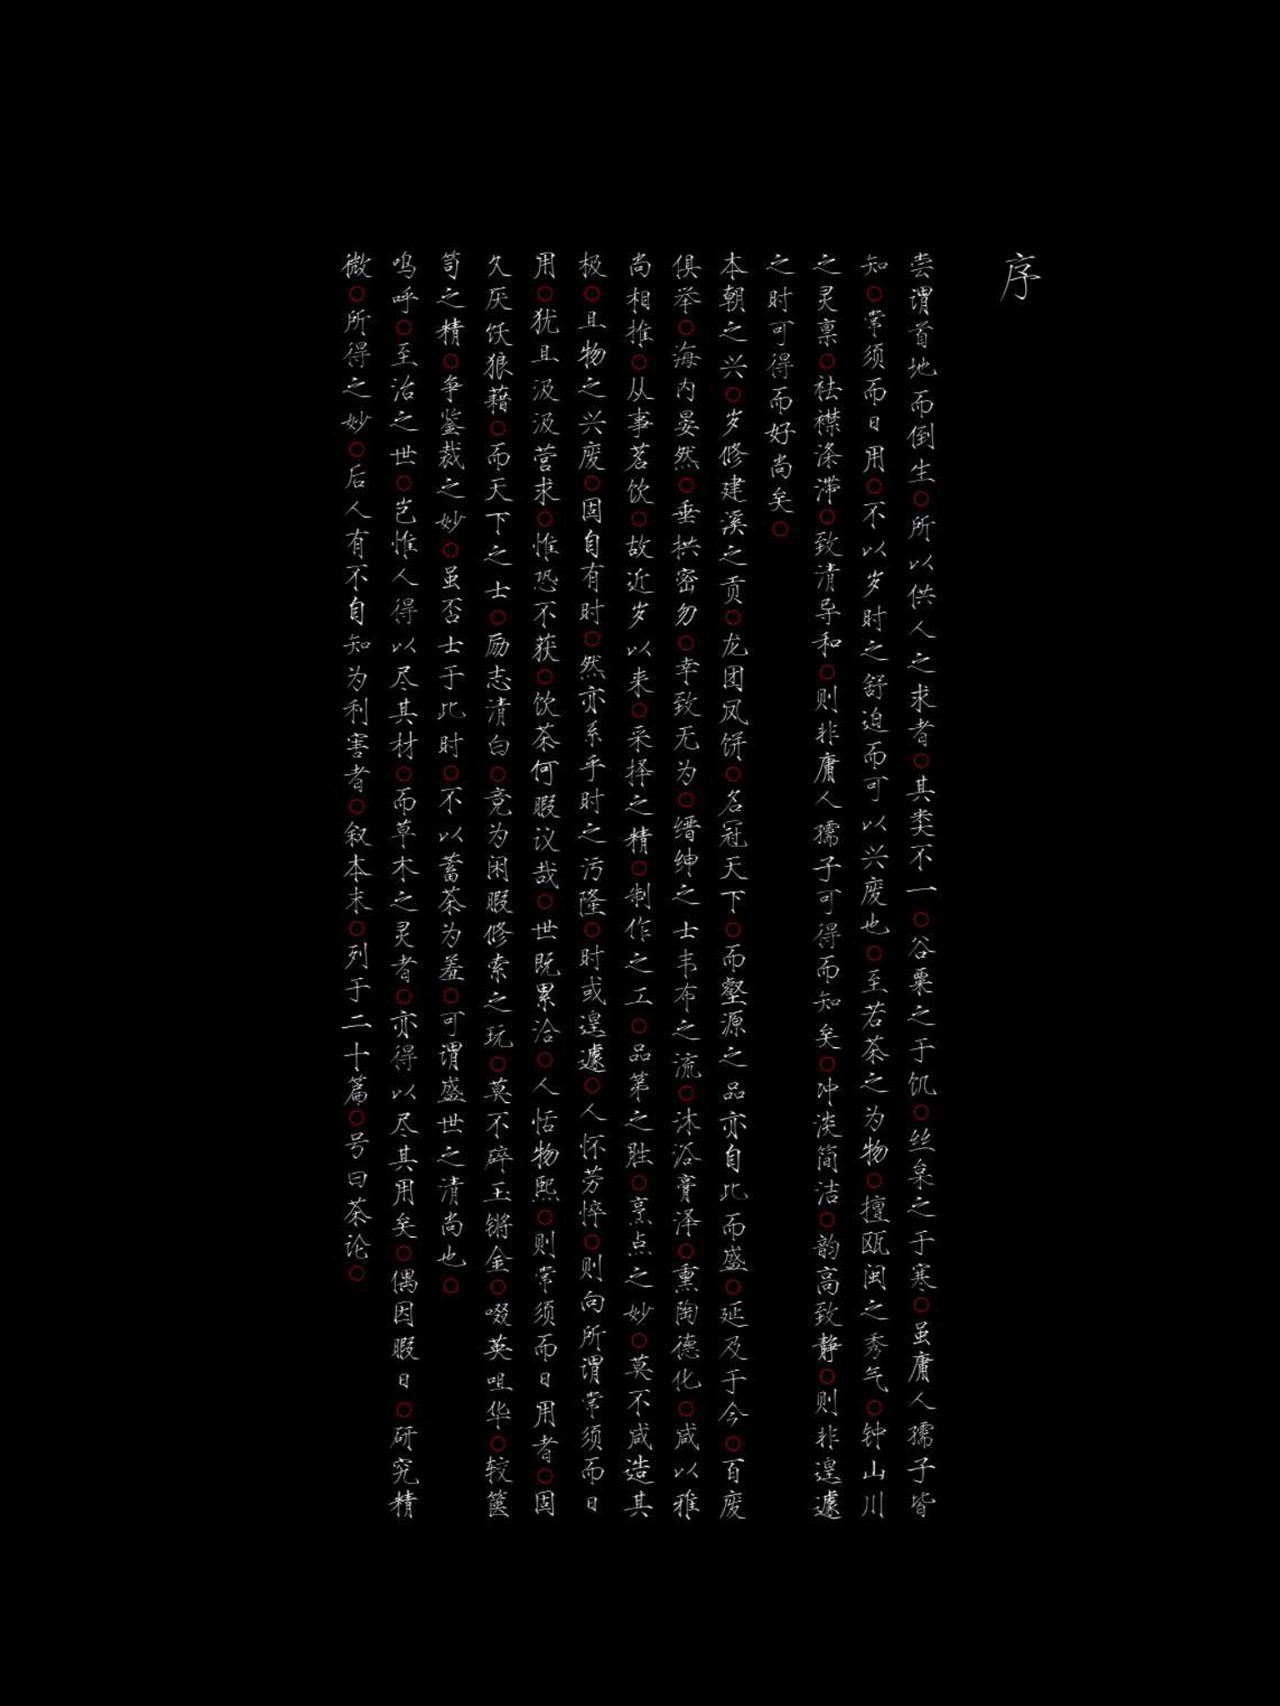 序
尝谓首地而倒生○所以供人之求者○其类不一○谷粟之于饥○丝枲之于寒○虽庸人孺子皆
知○常须而日用○不以岁时之舒迫而可以兴废也○至若茶之为物○擅瓯闽之秀气○钟山川
之灵禀○祛襟涤滞○致清导和○则非庸人孺子可得而知矣○冲淡简洁○韵高致静○则非遑遽
之时可得而好尚矣○
本朝之兴○岁修建溪之贡○龙团凤饼○名冠天下○而壑源之品亦自此而盛○延及于今○百废
俱举○海内晏然○垂拱密勿○幸致无为○缙绅之士韦布之流○沐浴膏泽○熏陶德化○咸以雅
尚相推○从事茗饮○故近岁以来○采择之精○制作之工○品第之胜○烹点之妙○莫不咸造其
极○且物之兴废○固自有时○然亦系乎时之污隆○时或遑遽○人怀劳悴○则向所谓常须而日
用○犹且汲汲营求○惟恐不获○饮茶何暇议哉○世既累洽○人恬物熙○则常须而日用者○固
久厌饫狼藉○而天下之士○励志清白○竞为闲暇修索之玩○莫不碎玉锵金○啜英咀华○较箧
笥之精○争鉴裁之妙○虽否士于此时○不以蓄茶为羞○可谓盛世之清尚也○
呜呼○至治之世○岂惟人得以尽其材○而草木之灵者○亦得以尽其用矣○偶因暇日○研究精
微○所得之妙○后人有不自知为利害者○叙本末○列于二十篇○号曰茶论○